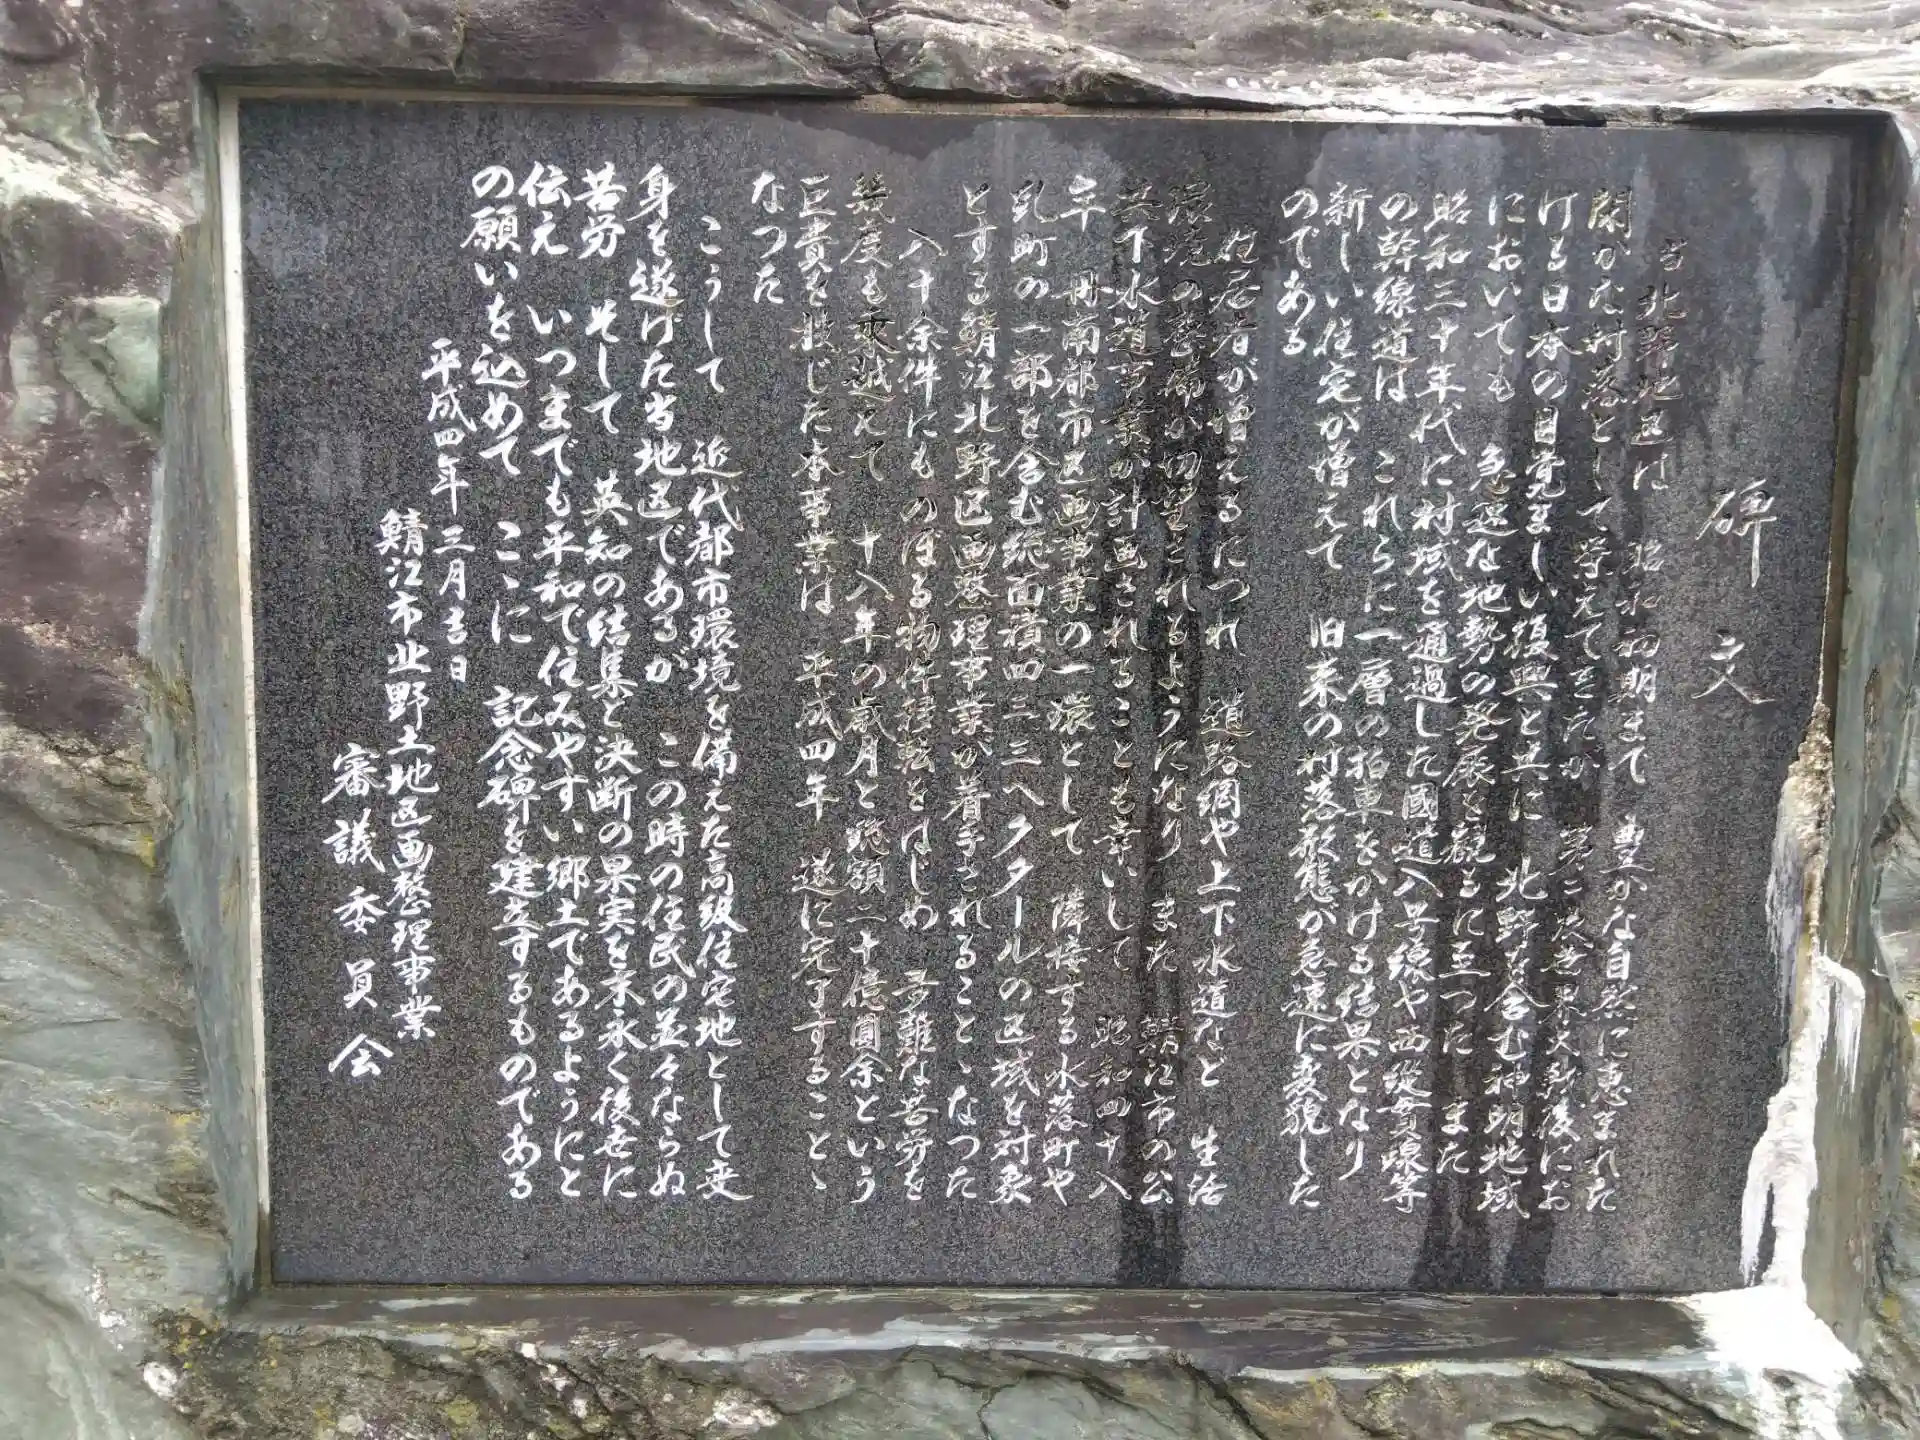 碑文
当北野地区は 昭和初期まで 豊かな自然に恵まれた
閑かな村落として栄えてきたが 第二次世界大戦後にお
ける日本の目覚ましい復興と共に 北野を含む神明地域
においても 急速な地勢の発展を観るに至つた また
昭和三十年代に村域を通過した國道八号線や西縦貫線等
の幹線道は これらに一層の拍車をかける結果となり
新しい住宅が増えて 旧来の村落形態が急速に変貌した
のである
住居者が増えるにつれ 道路網や上下水道など 生活
環境の整備が切望されるようになり また 鯖江市の公
共下水道事業が計画されることも幸いして 昭和四十八
年 丹南都市区画事業の一環として 隣接する水落町や
乳町の一部を含む総面積四三三ヘクタールの区域を対象
とする鯖江北野区画整理事業が着手されることゝなつた
八十余件にものぼる物件移転をはじめ 多難な苦労を
幾度も乗越えて 十八年の歳月と総額二十億圓余という
巨費を投じた本事業は 平成四年 遂に完了することゝ
なつた
こうして 近代都市環境を備えた高級住宅地として変
身を遂げた当地区であるが この時の住民の並々ならぬ
苦労 そして 英知の結集と決断の果実を末永く後世に
伝え いつまでも平和で住みやすい郷土であるようにと
の願いを込めて こゝに 記念碑を建立するものである
平成四年 三月吉日
鯖江市北野土地区画整理事業
審議委員会